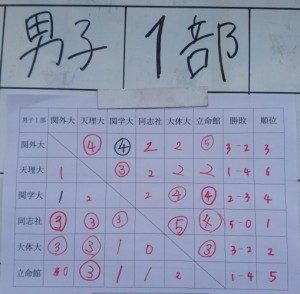 男子 1部
男子1部 関外大 天理大 関学大 同志社 大体大 立命館 勝敗 順位
関外大 ④ ④ 2 2 ⑤ 3-2 3
天理大 1 ③ 2 2 2 1-4 6
関学大 1 2 2 ④ ④ 2-3 4
同志社 ③ ③ ③ ⑤ ④ 5-0 1
大体大 ③ ③ 1 0 ③ 3-2 2
立命館 0 ③ 1 1 2 1-4 5